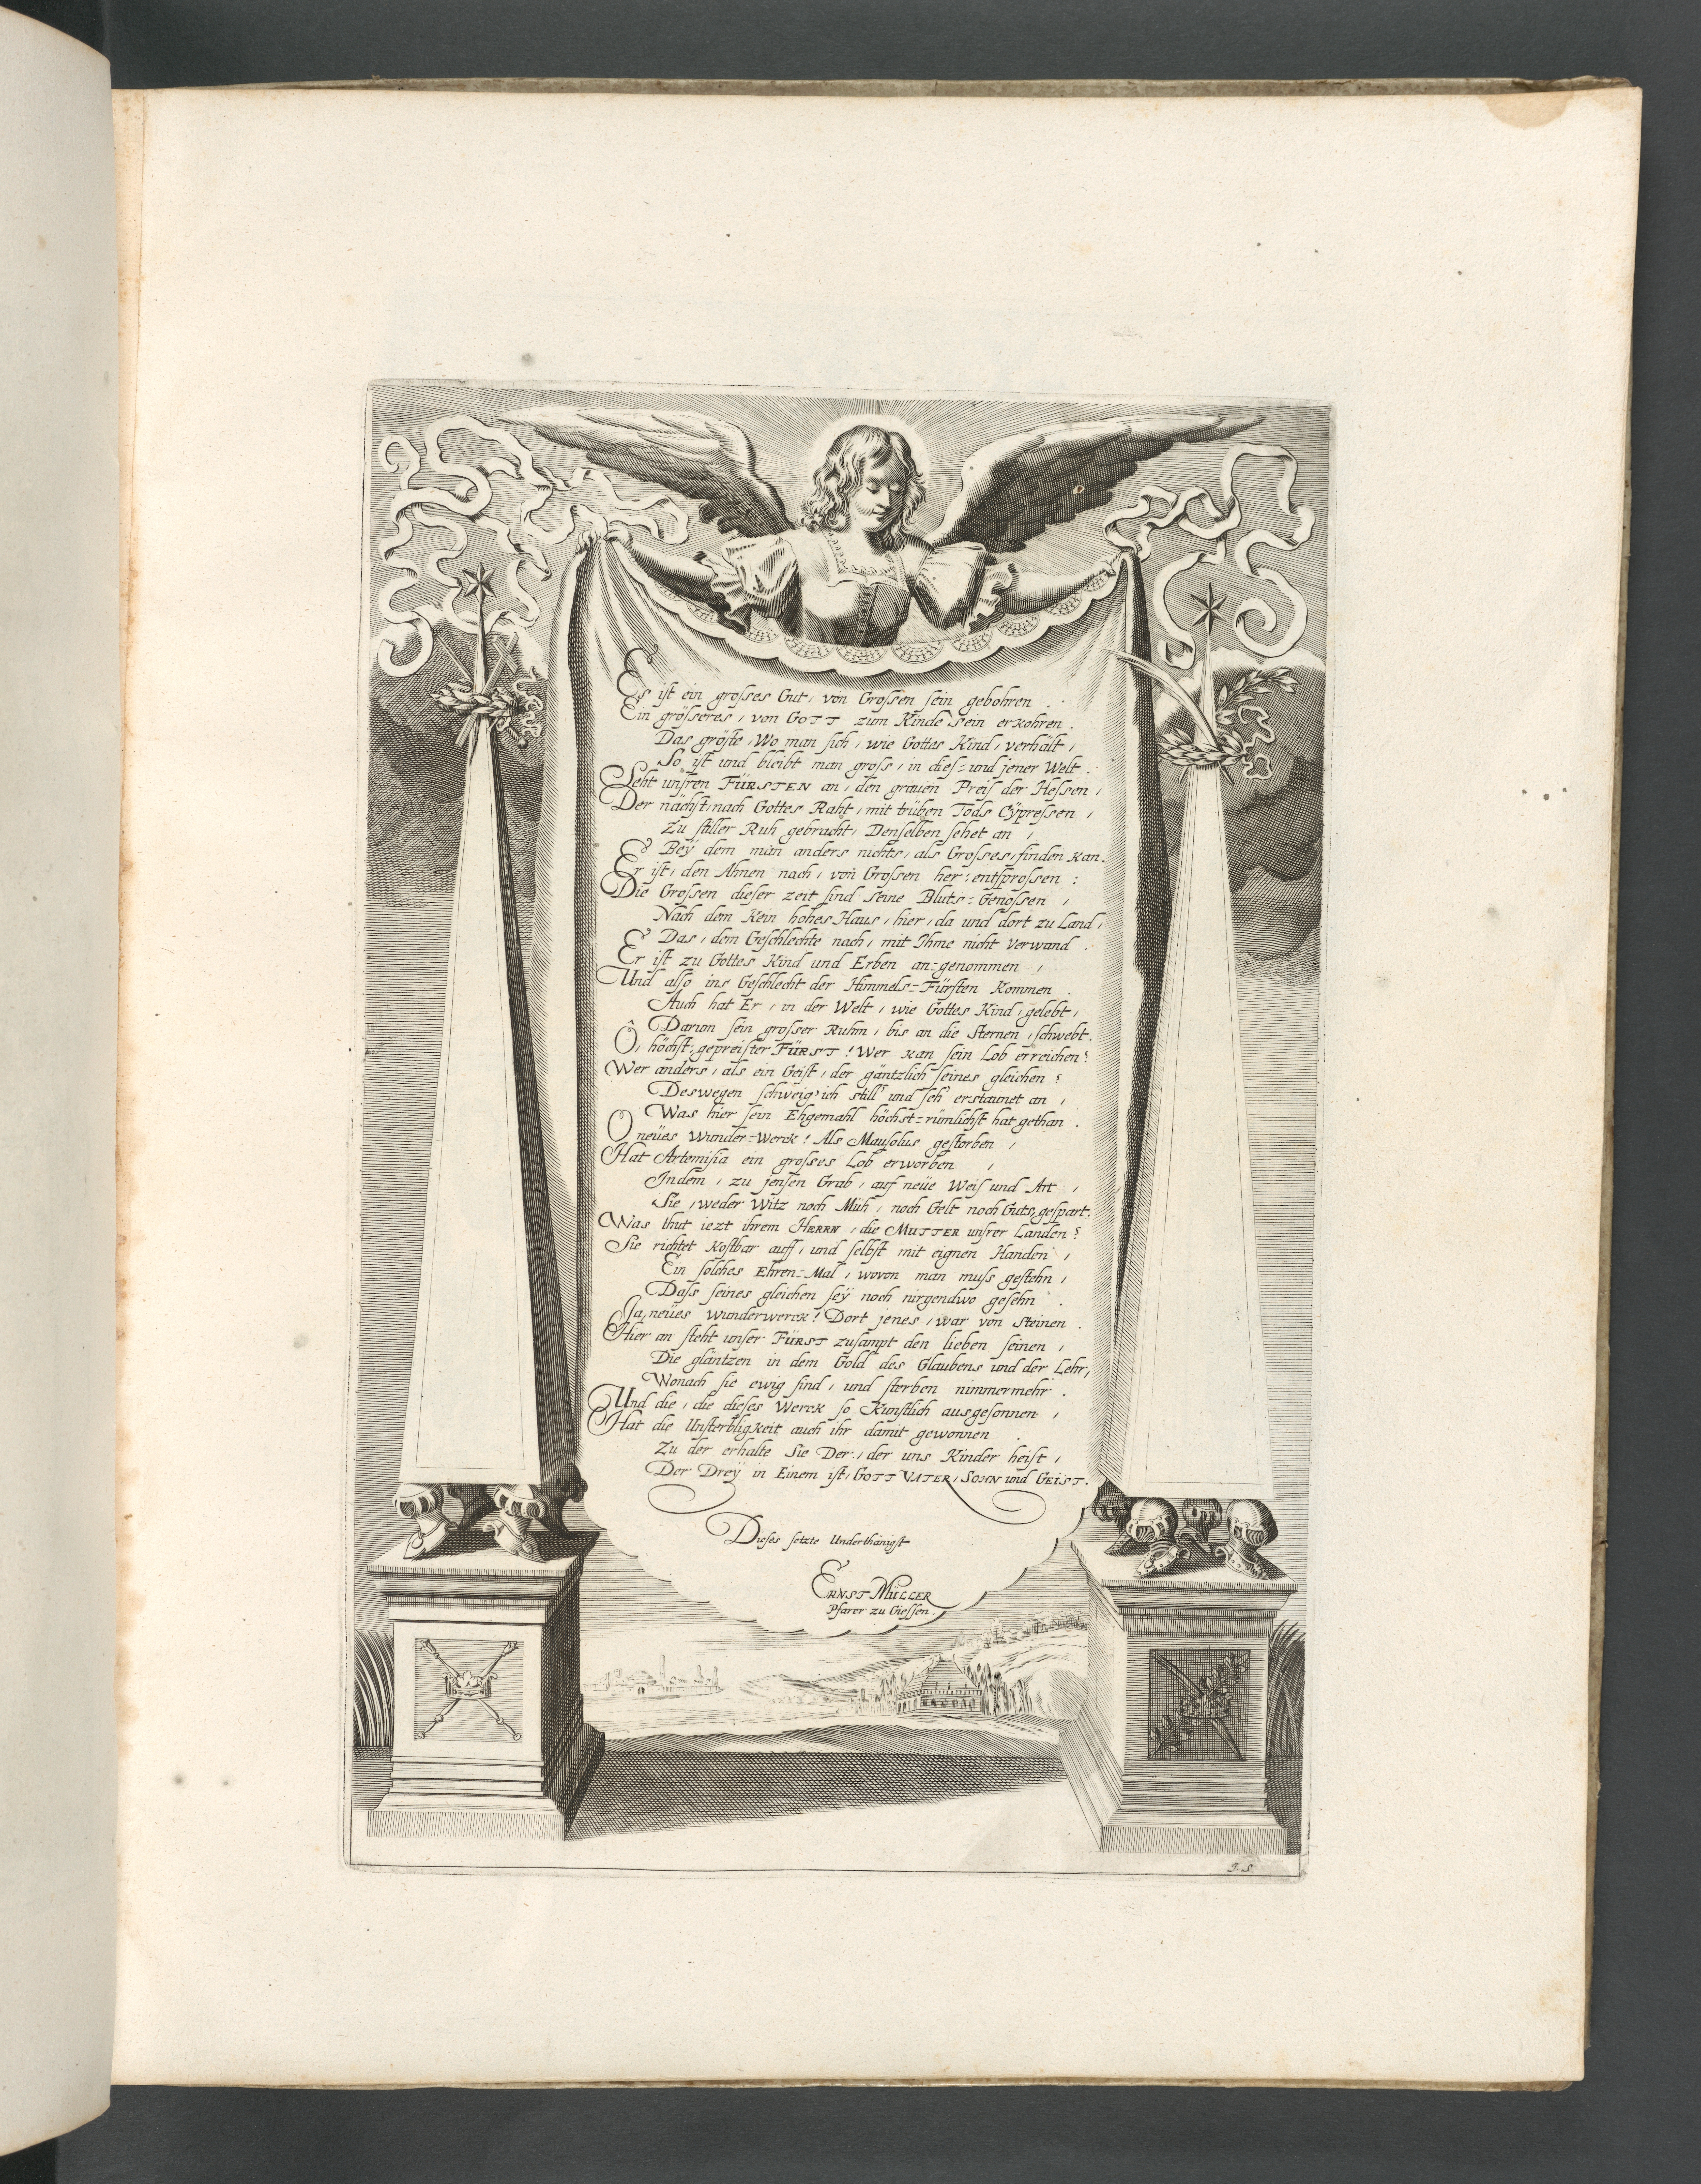 Es ist ein grosses Gut, von Grossen sein gebohren.
Ein grösseres, von GOTT zum Kinde sein erkohren.
Das gröste, Wo man sich, wie Gottes Kind, verhält,
So ist und bleibt man gross, in dies= und jener Welt.
Seht unsren FÜRSTEN an, den grauen Preis der Hessen,
Der nächst, nach Gottes Raht, mit trüben Tods Cÿpressen,
Zu stiller Ruh gebracht, Denselben sehet an,
Beÿ dem man anders nichts, als Grosses, finden kan.
Er ist, den Ahnen nach, von Grossen her, entsprossen:
Die Grossen dieser zeit sind seine Bluts=Genossen,
Nach dem kein hohes Haus, hier, da und dort zu Land,
Das, dem Geschlechte nach, mit Ihme nicht Verwand.
Er ist zu Gottes Kind und Erben an=genommen,
Und also ins Geschlecht der Himmels=Fürsten kommen.
Auch hat Er, in der Welt, wie Gottes Kind, gelebt,
Darum sein grosser Ruhm, bis an die Sternen, schwebt.
Ô, höchst, gepreister FÜRST! Wer kan sein Lob erreichen?
Wer anders, als ein Geist, der gäntzlich seines gleichen?
Deswegen schweig' ich still' und seh' erstaunet an,
Was hier sein Ehgemahl höchst=rümlichst hat gethan.
O neües Wunder=Werck! Als Mausolus gestorben,
Hat Artemisia ein grosses Lob erworben,
Indem, zu jensen Grab, auf neüe Weis und Art,
Sie, weder Witz noch Müh, noch Gelt noch Guts, gespart.
Was thut iezt ihrem HERRN, die MUTTER unsrer Landen?
Sie richtet kostbar auff, und selbst mit eignen Handen,
Ein solches Ehren=Mal, wovon man muss gestehn,
Dass seines gleichen seÿ noch nirgendwo gesehn.
Ja, neües wunderwerck! Dort jenes, war von Steinen.
Hier an steht unser FÜRST zusampt den lieben seinen,
Die gläntzen in dem Gold des Glaubens und der Lehr,
Wonach sie ewig sind, und sterben nimmermehr.
Und die, die dieses Werck so Künstlich ausgesonnen,
Hat die Unsterbligkeit auch ihr damit gewonnen.
Zu der erhalte Sie Der, der uns Kinder heist,
Der Dreÿ in Einem ist, GOTT VATER, SOHN und GEIST.
Dieses setzte Underthänigst
ERNST MÜLLER
Pfarer zu Giessen.
J. S